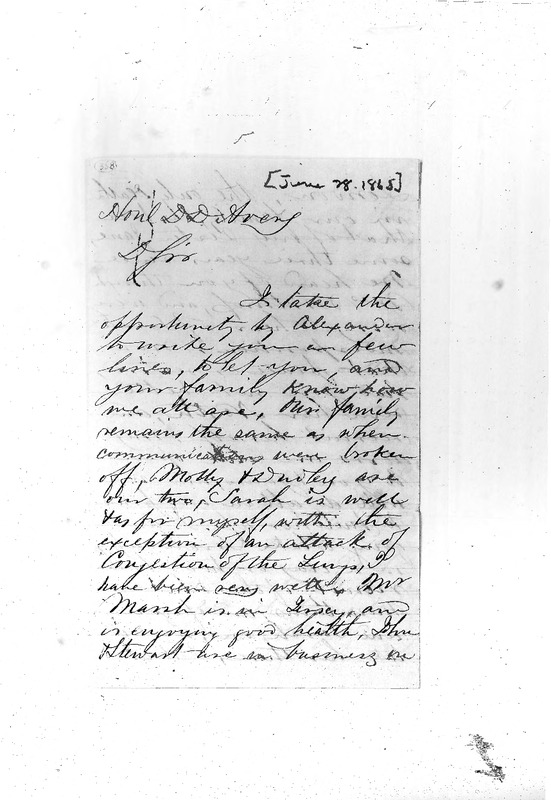 [June 28. 1865]
Honl D D Avery
D Sir
I take the
opportunity by Alexander
to write you a few
lines, to let you, and
your family know how
we all are, Our family
remains the same as when
communications were broken
off, Molly & Dudley are
our two, Sarah is well
& as for myself, with the
exception of an attack of
Congestion of the Lungs, I
have bien very well. Mr
Marsh is in Jersey, and
is enjoying good health, John
& Stewart are in business on